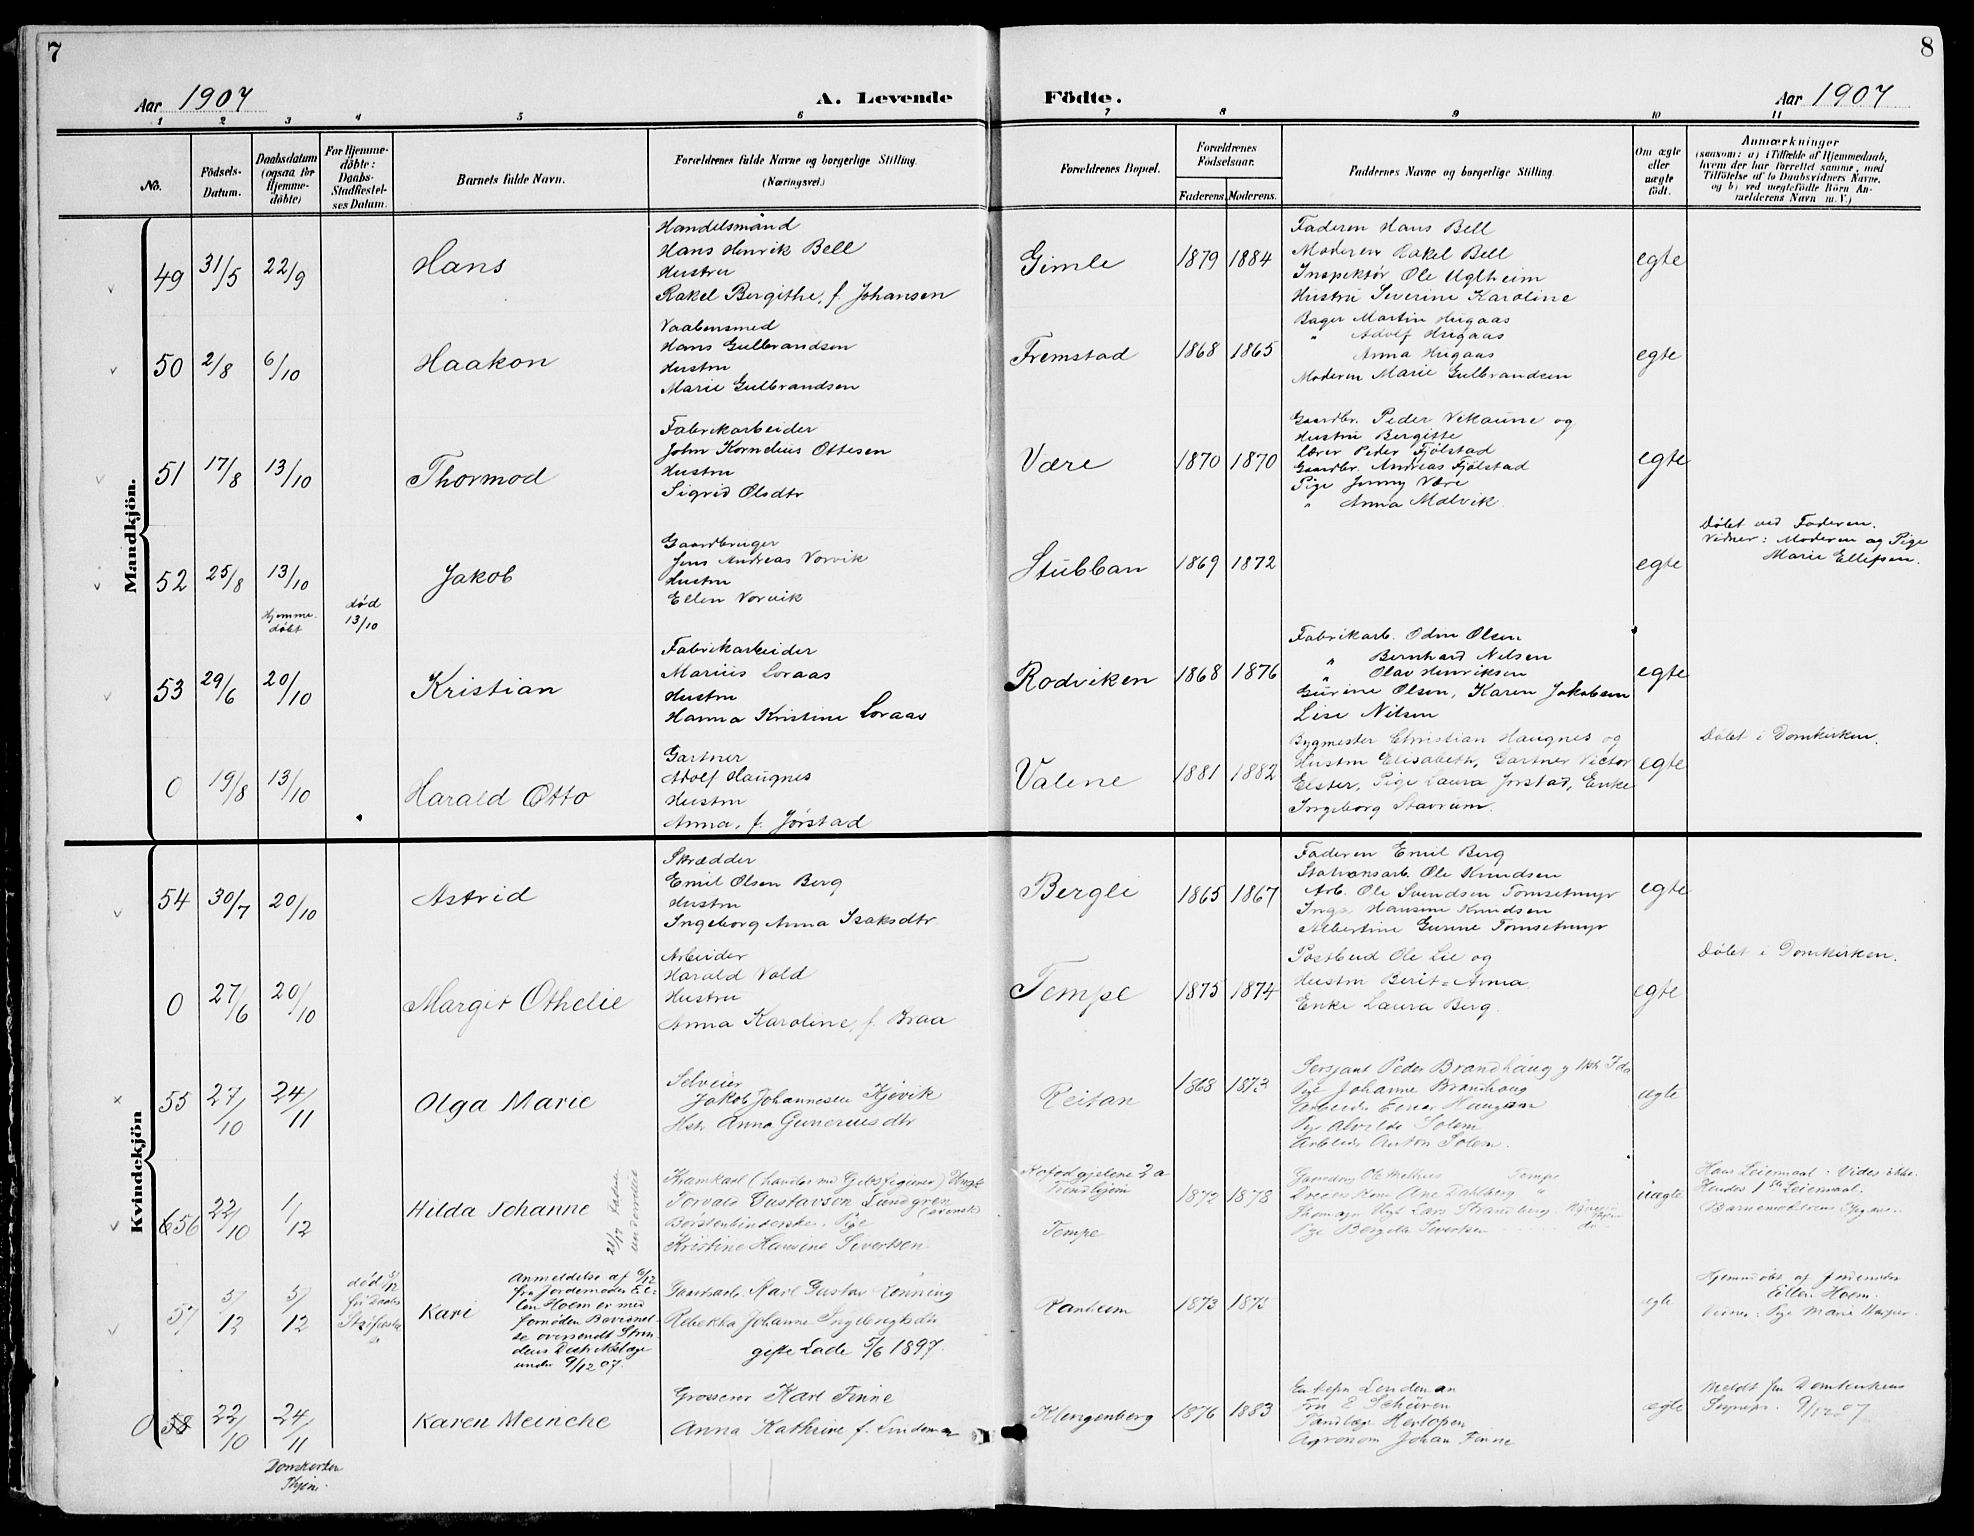 7
8
Aar 1907
A. Levende
Födte.
Aar 1907
1 2 3 4 5 6 7 8 9 10 11
No.
Födsels-
Datum.
Daabsdatum
(ogsaa for
Hjemme-
döbte)
For Hjemme-
döbte:
Daabs-
Stadfæstel-
ses Datum.
Barnets fulde Navn.
Forældrenes fulde Navne og borgerlige Stilling.
(Næringsvei.)
Forældrenes Bopæl.
Forældrenes
Födselsaar.
Faderens. Moderens.
Faddernes Navne og borgerlige Stilling.
Om ægte
eller
uægte
født.
Anmærkninger
(saasom: a) i Tilfælde af Hjemmedaab,
hvem der har forrettet samme, med
Tilföielse af to Daabsvidners Navne,
og b) ved uegtefödte Börn An-
melderens Navn m.V.)
Mandkjön.
49 31/5 22/9 Hans
Handelsmand
Hans Henrik Bell
Hustru
Rakel Bergithe, f. Johansen
Gimle 1879 1884
Faderen Hans Bell
Moderen Rakel Bell
Inspektør Ole Uglheim
Hustru Severine Karoline
egte
50 2/8 6/10 Haakon
Vaabensmed
Hans Gulbrandsen
Hustru
Marie Gulbrandsen
Fremstad 1868 1865
Bager Martin Hugaas
" Adolf Hugaas
Anna Hugaas
Moderen Marie Gulbrandsen
egte
51 17/8 13/10 Thormod
Fabrikarbeider
John Kornelius Ottesen
Hustru
Sigrid Olsdtr
Være 1870 1870
Gaardbr. Peder Vikaune og
Hustru Bergitte
Lærer Peder Fjølstad
Gaardbr. Andreas Fjølstad
Pige Jenny Være
" Anna Malvik.
egte
52 25/8 13/10 Jakob
Hjemme-
døbt
død
13/10
Gaardbruger
Jens Andreas Vorvik
Hustru
Ellen Vorvik
Stubban 1869 1872
egte
Døbt ved Faderen.
Vidner: Moderen og Pige
Marie Ellefsen.
53 29/6 20/10 Kristian
Fabrikarbeider
Marius Loraas
Hustru
Hanna Kristine Loraas
Rodviken 1868 1876
Fabrikarb. Odin Olsen
" Bernhard Nilsen
" Olav Henriksen
Gurine Olsen, Karen Jakobsen
Lise Nilsen
egte
0 19/8 13/10 Harald Otto
Gartner
Adolf Haugnes
Hustru
Anna, f. Jørstad
Valene 1881 1882
Bygmester Christian Haugnes og
Hustru Elisabeth, Gartner Victor
Elster, Pige Laura Jørstad, Enke
Ingeborg Stavrum.
egte
Døbt i Domkirken.
Kvindekjön
54 30/7 20/10 Astrid
Skrædder
Emil Olsen Berg
Hustru
Ingeborg Anna Isaksdtr
Bergli 1865 1867
Faderen Emil Berg
Stationsarb. Ole Knudsen
Arb. Ole Svendsen Tomsetmyr
Inga Hansine Knudsen
Albertine Gurine Tomsetmyr
egte
0 27/6 20/10 Margit Othelie
Arbeider
Harald Vold
Hustru
Anna Karoline, f. Braa
Tempe 1875 1874
Postbud Ole Lie og
Hustru Berit-Anna.
Enke Laura Berg.
egte
Døbt i Domkirken.
55 27/10 24/11 Olga Marie
Selveier
Jakob Johannesen Kjøvik
Hstr Anna Gunerusdtr
Reitan 1868 1873
Sersjant Peder Brandhaug g Hstr Ida
Pige Johanne Brandhaug
Arbeider Einar Haugan
Pige Alvilde Solem
Arbeider Anton Solem.
ægte
656 22/10 1/12 Hilda Johanne
Kramkarl (handler med Gibsfigurer) Ungk
Torvald Gustavson Lundgren
(svensk)
Børstenbinderske, Pige
Kristine Hansine Sivertsen
Tempe 1872 1878
uægte
Hans Leiermaal. Vides ikke.
Hendes 1ste Leiermaal.
57 5/12 5/12 Kari
død 5/12
Anmeldelse af 6/12
fra Jordemoder El-
len Hoem er med
fornøden Bevidnel-
se oversendt Strin-
dens Distriktslæge
under 9/12 07.
Gaardarb. Karl Gustav Rønning
Rebekka Johanne Ingebrigtsdtr
gifte Lade 5/6 1897.
Ranheim 1873 1875
egte
Hjemmdøbt af Jordemoder
Ellen Hoem.
0 58 22/10 24/11 Karen Meincke
Domkirken
Thjem.
Grosserer Karl Finne
Anna Kathrine f. Lindeman
Klengenberg 1876 1883
Fru E Schüren
Tandlæge Hertopen
Agronom Johan Finne
ægte
Meldt fra Domkirkens
Sognepr. 9/12 07